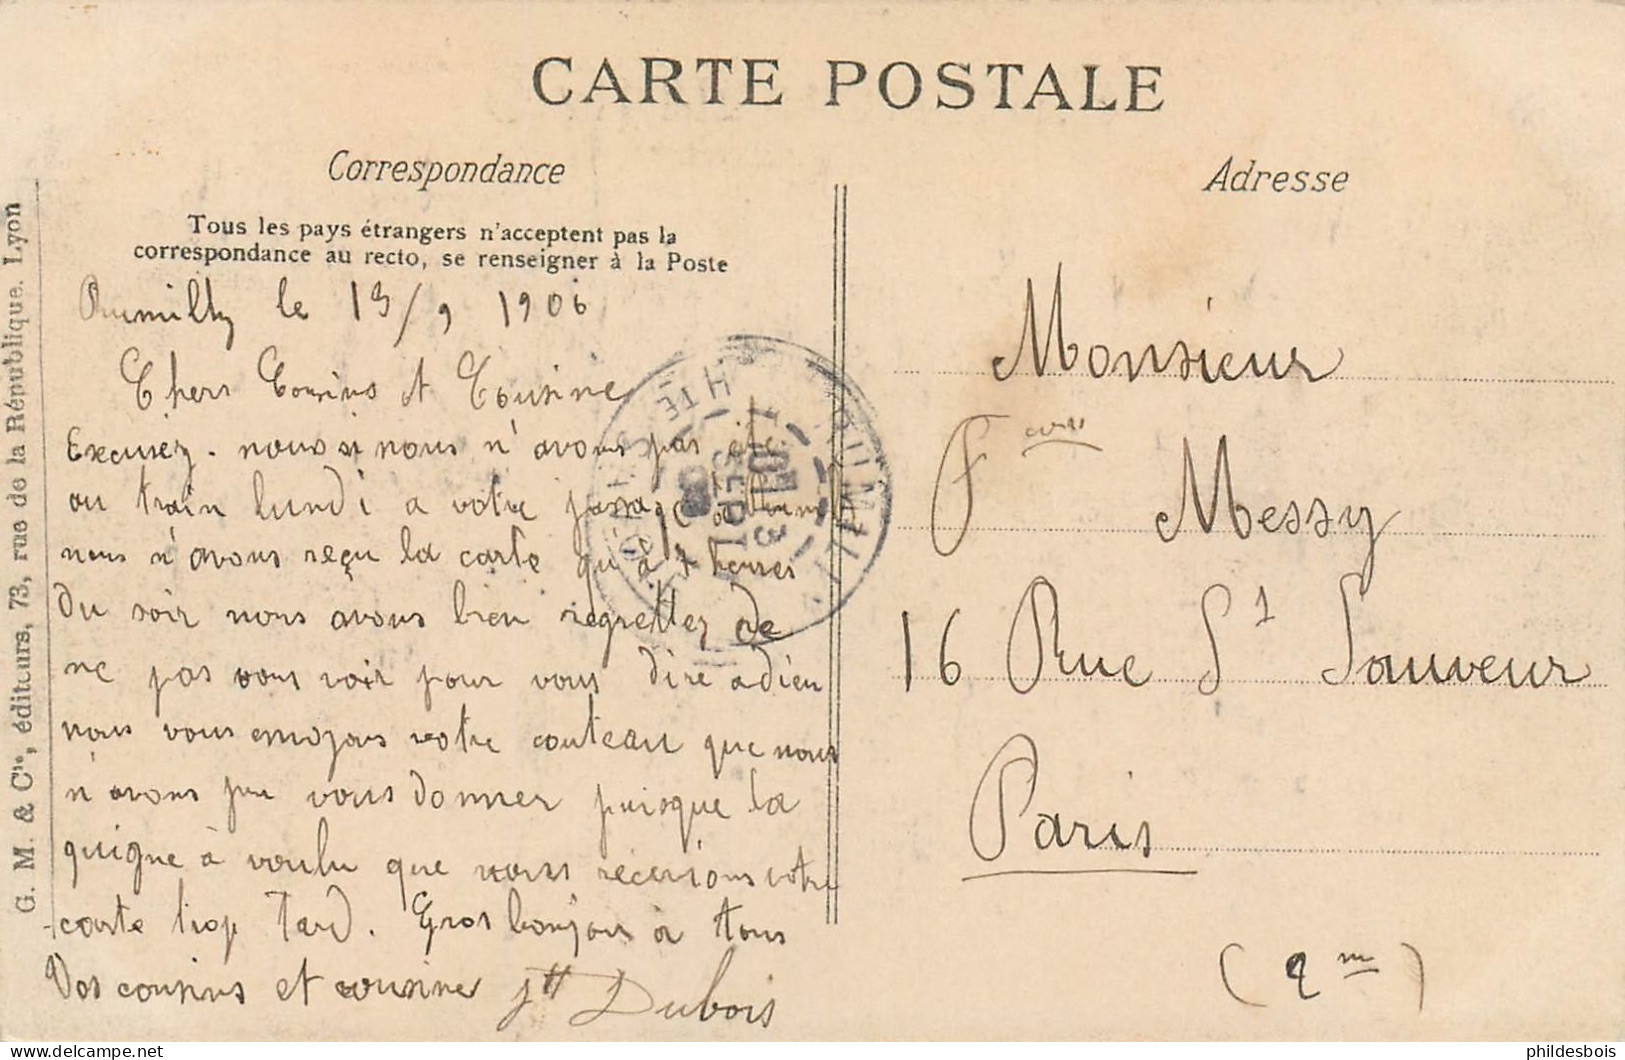 CARTE POSTALE
Correspondance
Tous les pays étrangers n'acceptent pas la
correspondance au recto, se renseigner à la Poste
Rumilly le 13/9 1906
Chers Cousins et Cousine
Excusez. nous si nous n'avons pas été
au train lundi a votre passage à Rumilly
nous n'avons reçu la carte qu'à 7 heures
du soir nous avons bien regrettez de
ne pas vous voir pour vous dire adieu
nous vous envoyons votre couteau que nous
n'avons pu vous donner puisque la
guigne à voulu que nous recevions votre
carte trop Tard. Gros bonjour à tous
Vos cousins et cousine Jh Dubois
G. M. & Cie, éditeurs, 73, rue de la République. Lyon
RUMILLY
HTE SAVOIE
13
SEPT
06
Adresse
Monsieur
Fcois Messy
16 Rue St Sauveur
Paris
(2 me)
phildesbois